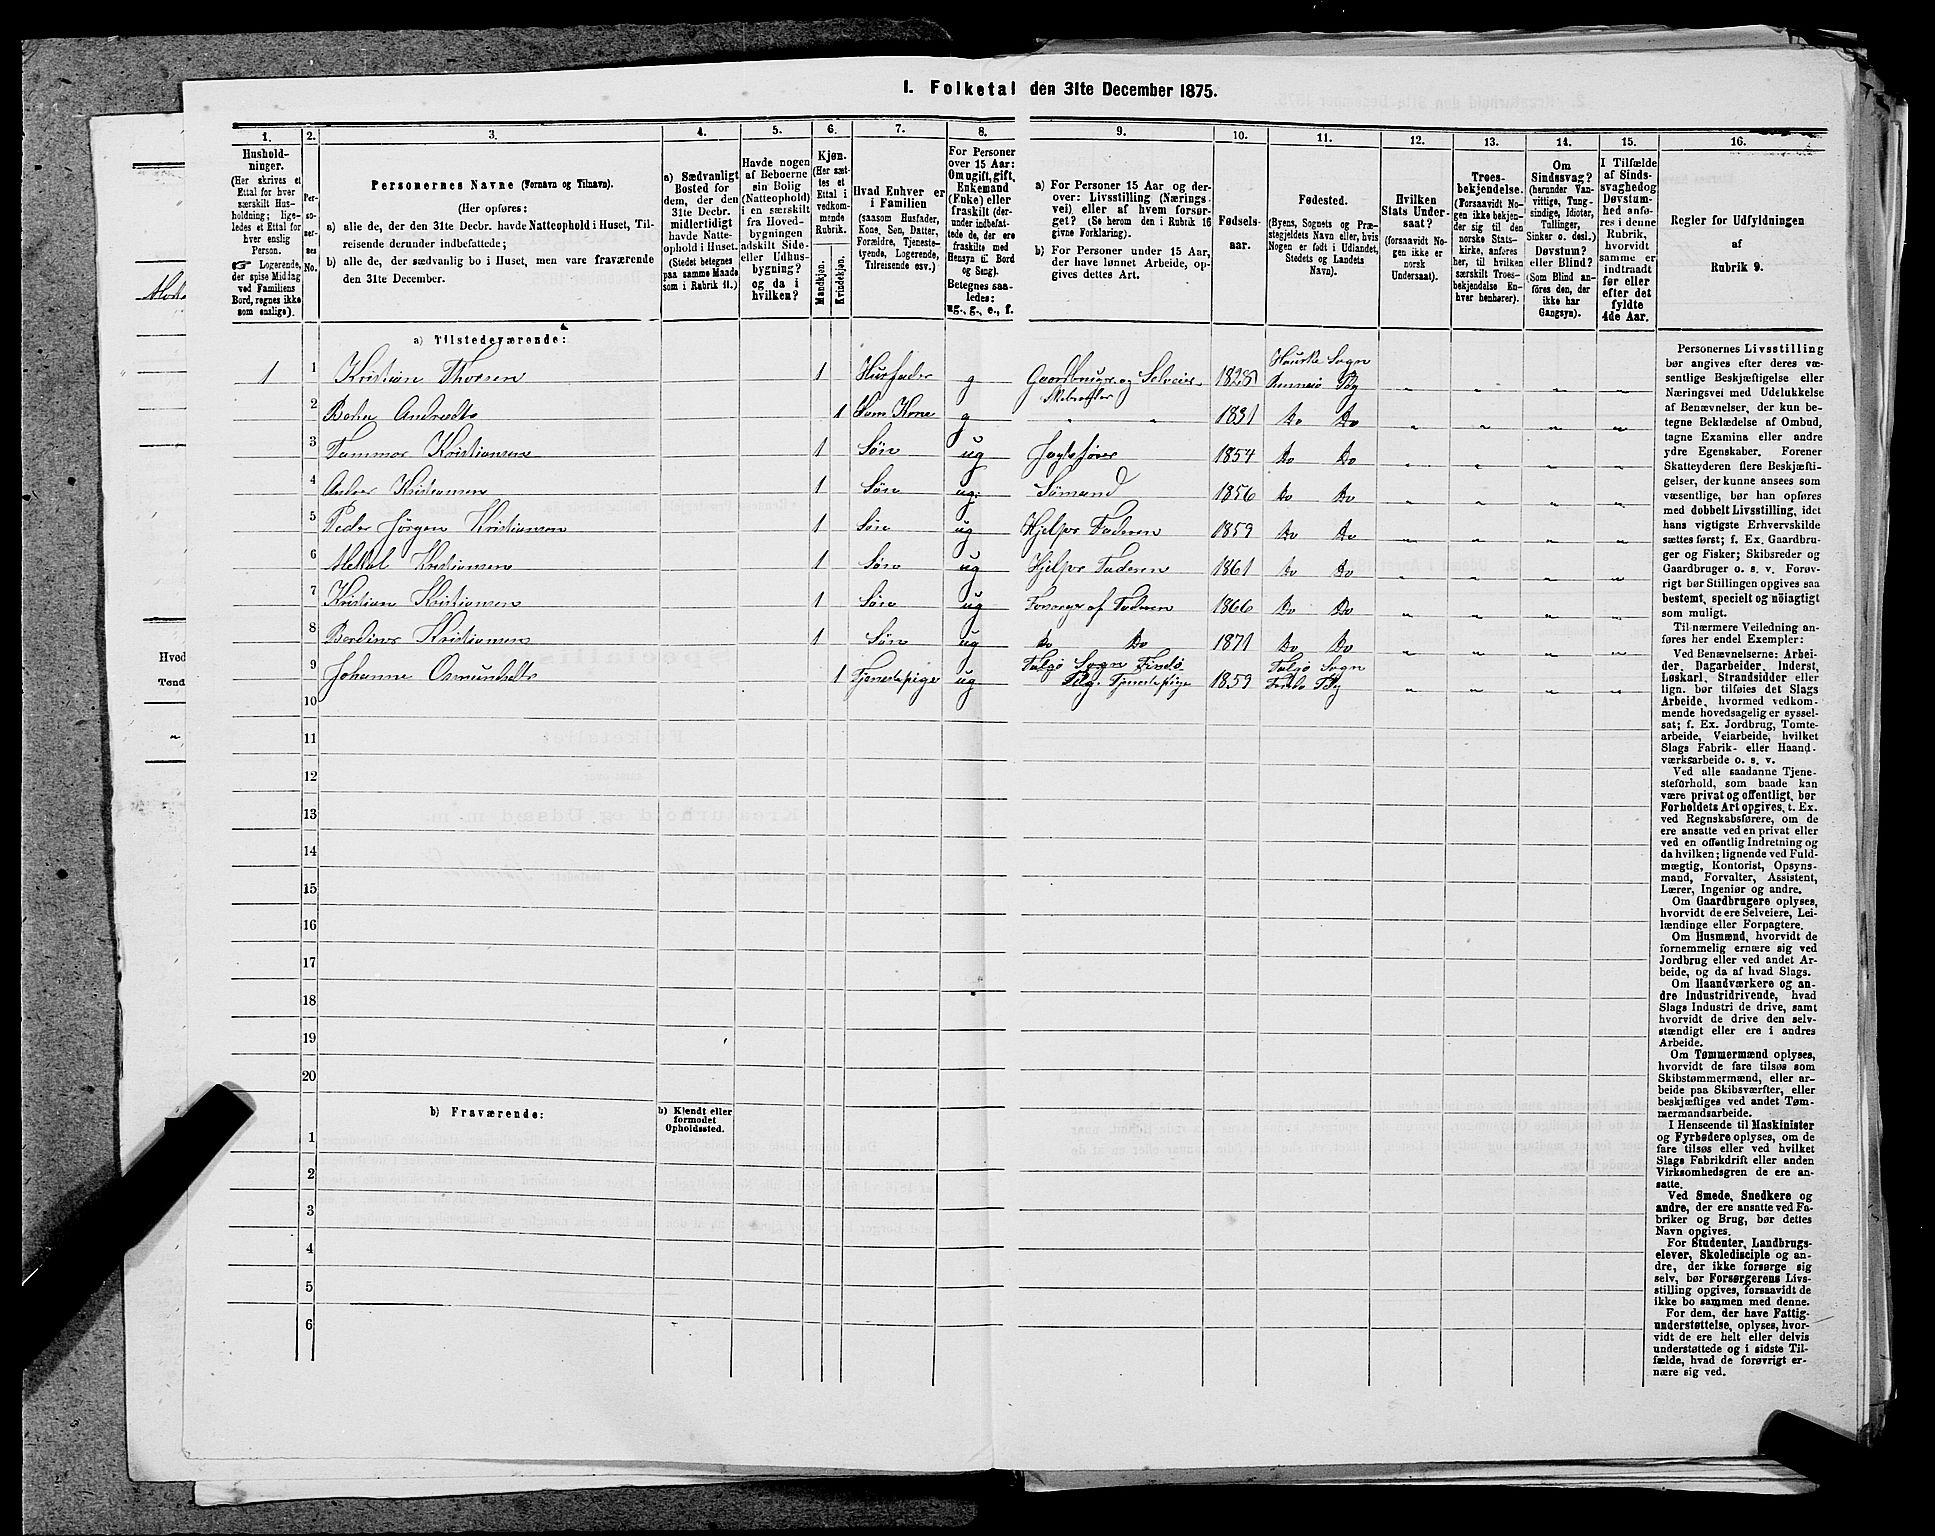 I. Folketal den 31te December 1875.
1.
Husholdninger.
(Her skrives et
Ettal for hver
særskilt Husholdning; ligeledes et Ettal for
hver enslig
Person.
☞ Logerende,
der spise Middag
ved Familiens
Bord, regnes ikke
som enslige).
2.
Personernes No.
3.
Personernes Navne (Fornavn og Tilnavn).
(Her opføres:
a) alle de, der den 31te Decbr. havde Natteophold i Huset, Tilreisende derunder indbefattede;
b) alle de, der sædvanlig bo i Huset, men vare fraværende
den 31te December.
4.
a) Sædvanligt
Bosted for
dem, der den
31te Decbr.
midlertidigt
havde Natteophold i Huset.
(Stedet betegnes
paa samme Maade
som i Rubrik 11.)
5.
Havde nogen
af Beboerne
sin Bolig
(Natteophold)
i en særskilt
fra Hovedbygningen
adskilt Side-
eller Udhusbygning?
og da i
hvilken?
6.
Kjøn.
(Her sættes et
Ettal i
vedkommende
Rubrik.
Mandkjøn.
Kvindekjøn.
7.
Hvad Enhver er
i Familien
(saasom Husfader,
Kone, Søn, Datter,
Forældre, Tjenestetyende, Logerende,
Tilreisende osv.)
8.
For Personer
over 15 Aar:
Om ugift, gift,
Enkemand
(Enke) eller
fraskilt (derunder indbefattede de, der ere
fraskilte med
Hensyn til Bord
og Seng).
Betegnes saaledes:
ug., g., e., f.
9.
a) For Personer 15 Aar og derover: Livsstilling (Næringsvei) eller af hvem forsørget? (Se herom den i Rubrik 16
givne Forklaring).
b) For Personer under 15 Aar,
der have lønnet Arbeide, opgives dettes Art.
10.
Fødselsaar.
11.
Fødested.
(Byens, Sognets og Præstegjeldets Navn eller, hvis
Nogen er født i Udlandet,
Stedets og Landets
Navn).
12.
Hvilken
Stats Undersaat?
(forsaavidt Nogen ikke er
norsk
Undersaat).
13.
Troesbekjendelse.
(Forsaavidt Nogen ikke bekjender sig til den
norske Statskirke, anføres
her, til hvilken
særskilt Troesbekjendelse Enhver henhører).
14.
Om
Sindssvag?
(herunder Vanvittige, Tungsindige, Idioter,
Tullinger,
Sinker o. desl.)
Døvstum?
eller Blind?
(Som Blind anföres den, der
ikke har
Gangsyn).
15.
I Tilfælde
af Sindssvaghed og
Døvstumhed anføres i denne
Rubrik,
hvorvidt
samme er
indtraadt
før eller
efter det
fyldte
4de Aar.
16.
Regler for Udfyldningen
af
Rubrik 9.
a) Tilstedeværende:
1 1 Kristian Thorsen 1 Husfader g Gaardbruger og Selveier 1823 Hauske Sogn Rennesö Pg
2 Berta Andredtr 1 Hans Kone g " " 1831 Do Do
3 Tammes Kristiansen 1 Søn ug 1854 Do Do
4 Kristiansen 1 Søn ug: Sömand 1856 Do Do
5 Peder Jörgen Kristiansen 1 Søn ug Hjelper Faderen 1859 Do Do
6 Mekal Kristiansen 1 Søn ug Hjelper Faderen 1861 Do Do
7 Kristian Kristiansen 1 Søn ug Forsørges af Faderen 1866 Do Do
8 Berdines Kristiansen 1 Søn ug Do Do 1871 Do Do
9 Johanne Osmundsdtr 1 Tjenestepige ug Talgö Sogn Findö Pg. Tjenestepige 1859 Talgö Sogn Findö Pg
10
11
12
13
14
15
16
17
18
19
20
b) Fraværende:
b) Kjendt eller
formodet
Opholdssted.
1
2
3
4
5
6
Personernes Livsstilling
bør angives efter deres væsentlige Beskjæftigelse eller
Næringsvei med Udelukkelse
af Benævnelser, der kun betegne Beklædelse af Ombud,
tagne Examina eller andre
ydre Egenskaber. Forener
Skatteyderen flere Beskjæftigelser, der kunne ansees som
væsentlige, bør han opføres
med dobbelt Livsstilling, idet
hans vigtigste Erhvervskilde
sættes først; f. Ex. Gaardbruger og Fisker; Skibsreder og
Gaardbruger o. s. v. Forøvrigt bør Stillingen opgives saa
bestemt, specielt og nöiagtigt
som muligt.
Til nærmere Veiledning anføres her endel Exempler:
Ved Benævnelserne: Arbeider, Dagarbeider, Inderst,
Løskarl, Strandsidder eller
lign. bør tilføies det Slags
Arbeide, hvormed vedkommende hovedsagelig er sysselsat; f. Ex. Jordbrug, Tomtearbeide, Veiarbeide, hvilket
Slags Fabrik- eller Haandværksarbeide o. s. v.
Ved alle saadanne Tjenesteforhold, som baade kan
være privat og offentligt, bør
Forholdets Art opgives, t. Ex.
ved Regnskabsførere, om de
ere ansatte ved en privat eller
ved en offentlig Indretning og
da hvilken; lignende ved Fuldmægtig, Kontorist, Opsynsmand, Forvalter, Assistent,
Lærer, Ingeniør og andre.
Om Gaardbrugere oplyses,
hvorvidt de ere Selveiere, Leilændinge eller Forpagtere.
Om Husmænd, hvorvidt de
fornemmelig ernære sig ved
Jordbrug eller ved andet Arbeide, og da af hvad Slags.
Om Haandværkere og andre Industridrivende, hvad
Slags Industri de drive, samt
hvorvidt de drive den selvstændigt eller ere i andres
Arbeide.
Om Tømmermænd oplyses,
hvorvidt de fare tilsøs som
Skibstømmermænd, eller arbeide paa Skibsværfter, eller
beskjæftiges ved andet Tømmermandsarbeide.
I Henseende til Maskinister
og Fyrbødere oplyses, om de
fare tilsøs eller ved hvilket
Slags Fabrikdrift eller anden
Virksomhedsgren de ere ansatte.
Ved Smede, Snedkere og
andre, der ere ansatte ved Fabriker og Brug, bør dettes
Navn opgives.
For Studenter, Landbrugselever, Skoledisciple og andre, der ikke forsørge sig
selv, bør Forsørgerens Livsstilling opgives, forsaavidt de
ikke bo sammen med denne.
For dem, der have Fattigunderstøttelse, oplyses, hvorvidt de ere helt eller delvis
understøttede og i sidste Tilfælde, hvad de forøvrigt ernære sig ved.